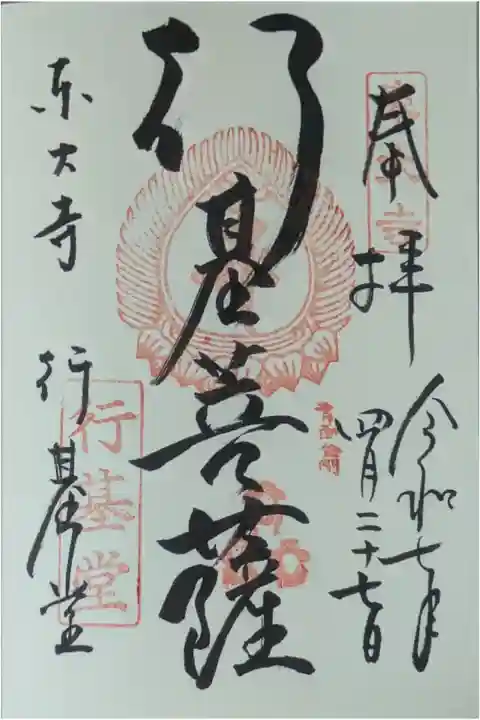 奉拝
令和七年
四月二十七日
行基菩薩
東大寺
行基堂
行基堂